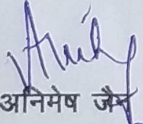 अनिमेष जैन